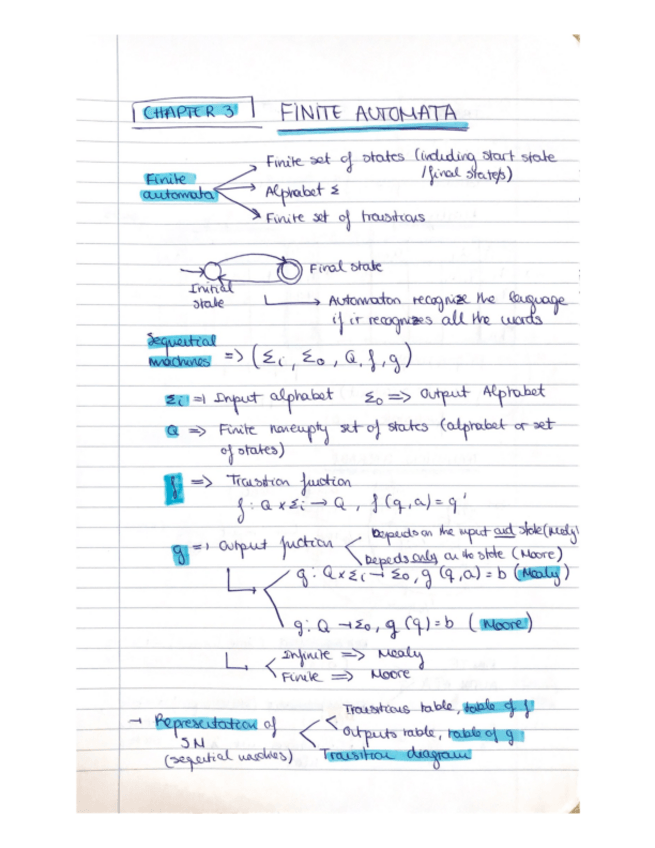 CHAPTER 3 FINITE AUTOMATA
Finite set of states (including start state
/ final state/s)
Finite
automata
Alphabet Σ
Finite set of transitions
Final state
Initial
state
Automaton recognize the language
if it recognizes all the words
Sequential
machines => (Σi, Σo, Q, f, g)
Σi => Input alphabet Σo => Output Alphabet
Q => Finite nonempty set of states (alphabet or set
of states)
f => Transition function
f: Q x Σi → Q, f(q,a) = q'
g => Output function
Depends on the input and state (Mealy)
Depends only on the state (Moore)
g: Q x Σi → Σo, g(q,a) = b (Mealy)
g: Q → Σo, g(q) = b (Moore)
Infinite => Mealy
Finite => Moore
Transitions table, table of f
→ Representation of
Outputs table, table of g
SM
(sequential machines)
Transition diagram